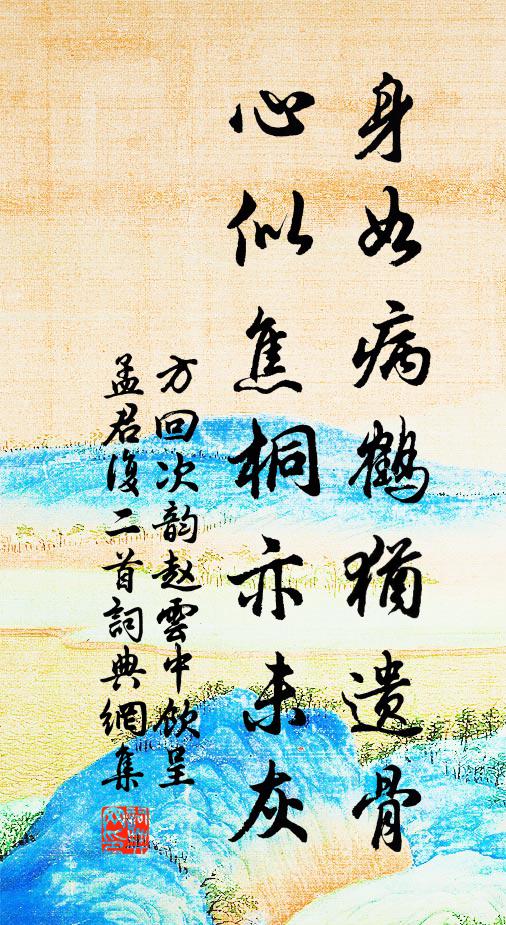 身如病鶴猶遗骨
心似焦桐亦未灰
方回次韵赵雲中飲呈
孟君復二首詞典網集